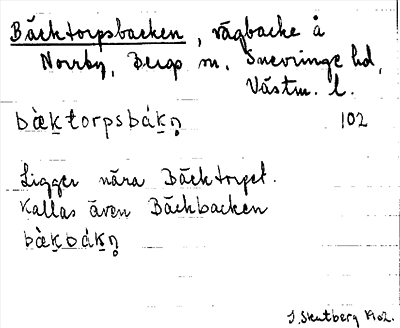 Bäcktorpsbacken, vägbacke å
Norrby, Bergs sn, Snevringe hd,
Västm. l.
bæ̀ḵtorpsbáḵn̥ 102
Ligger nära Bäcktorpet.
Kallas även Bäckbacken
bæ̀ḵbáḵn̥
J. Skutberg 1902.